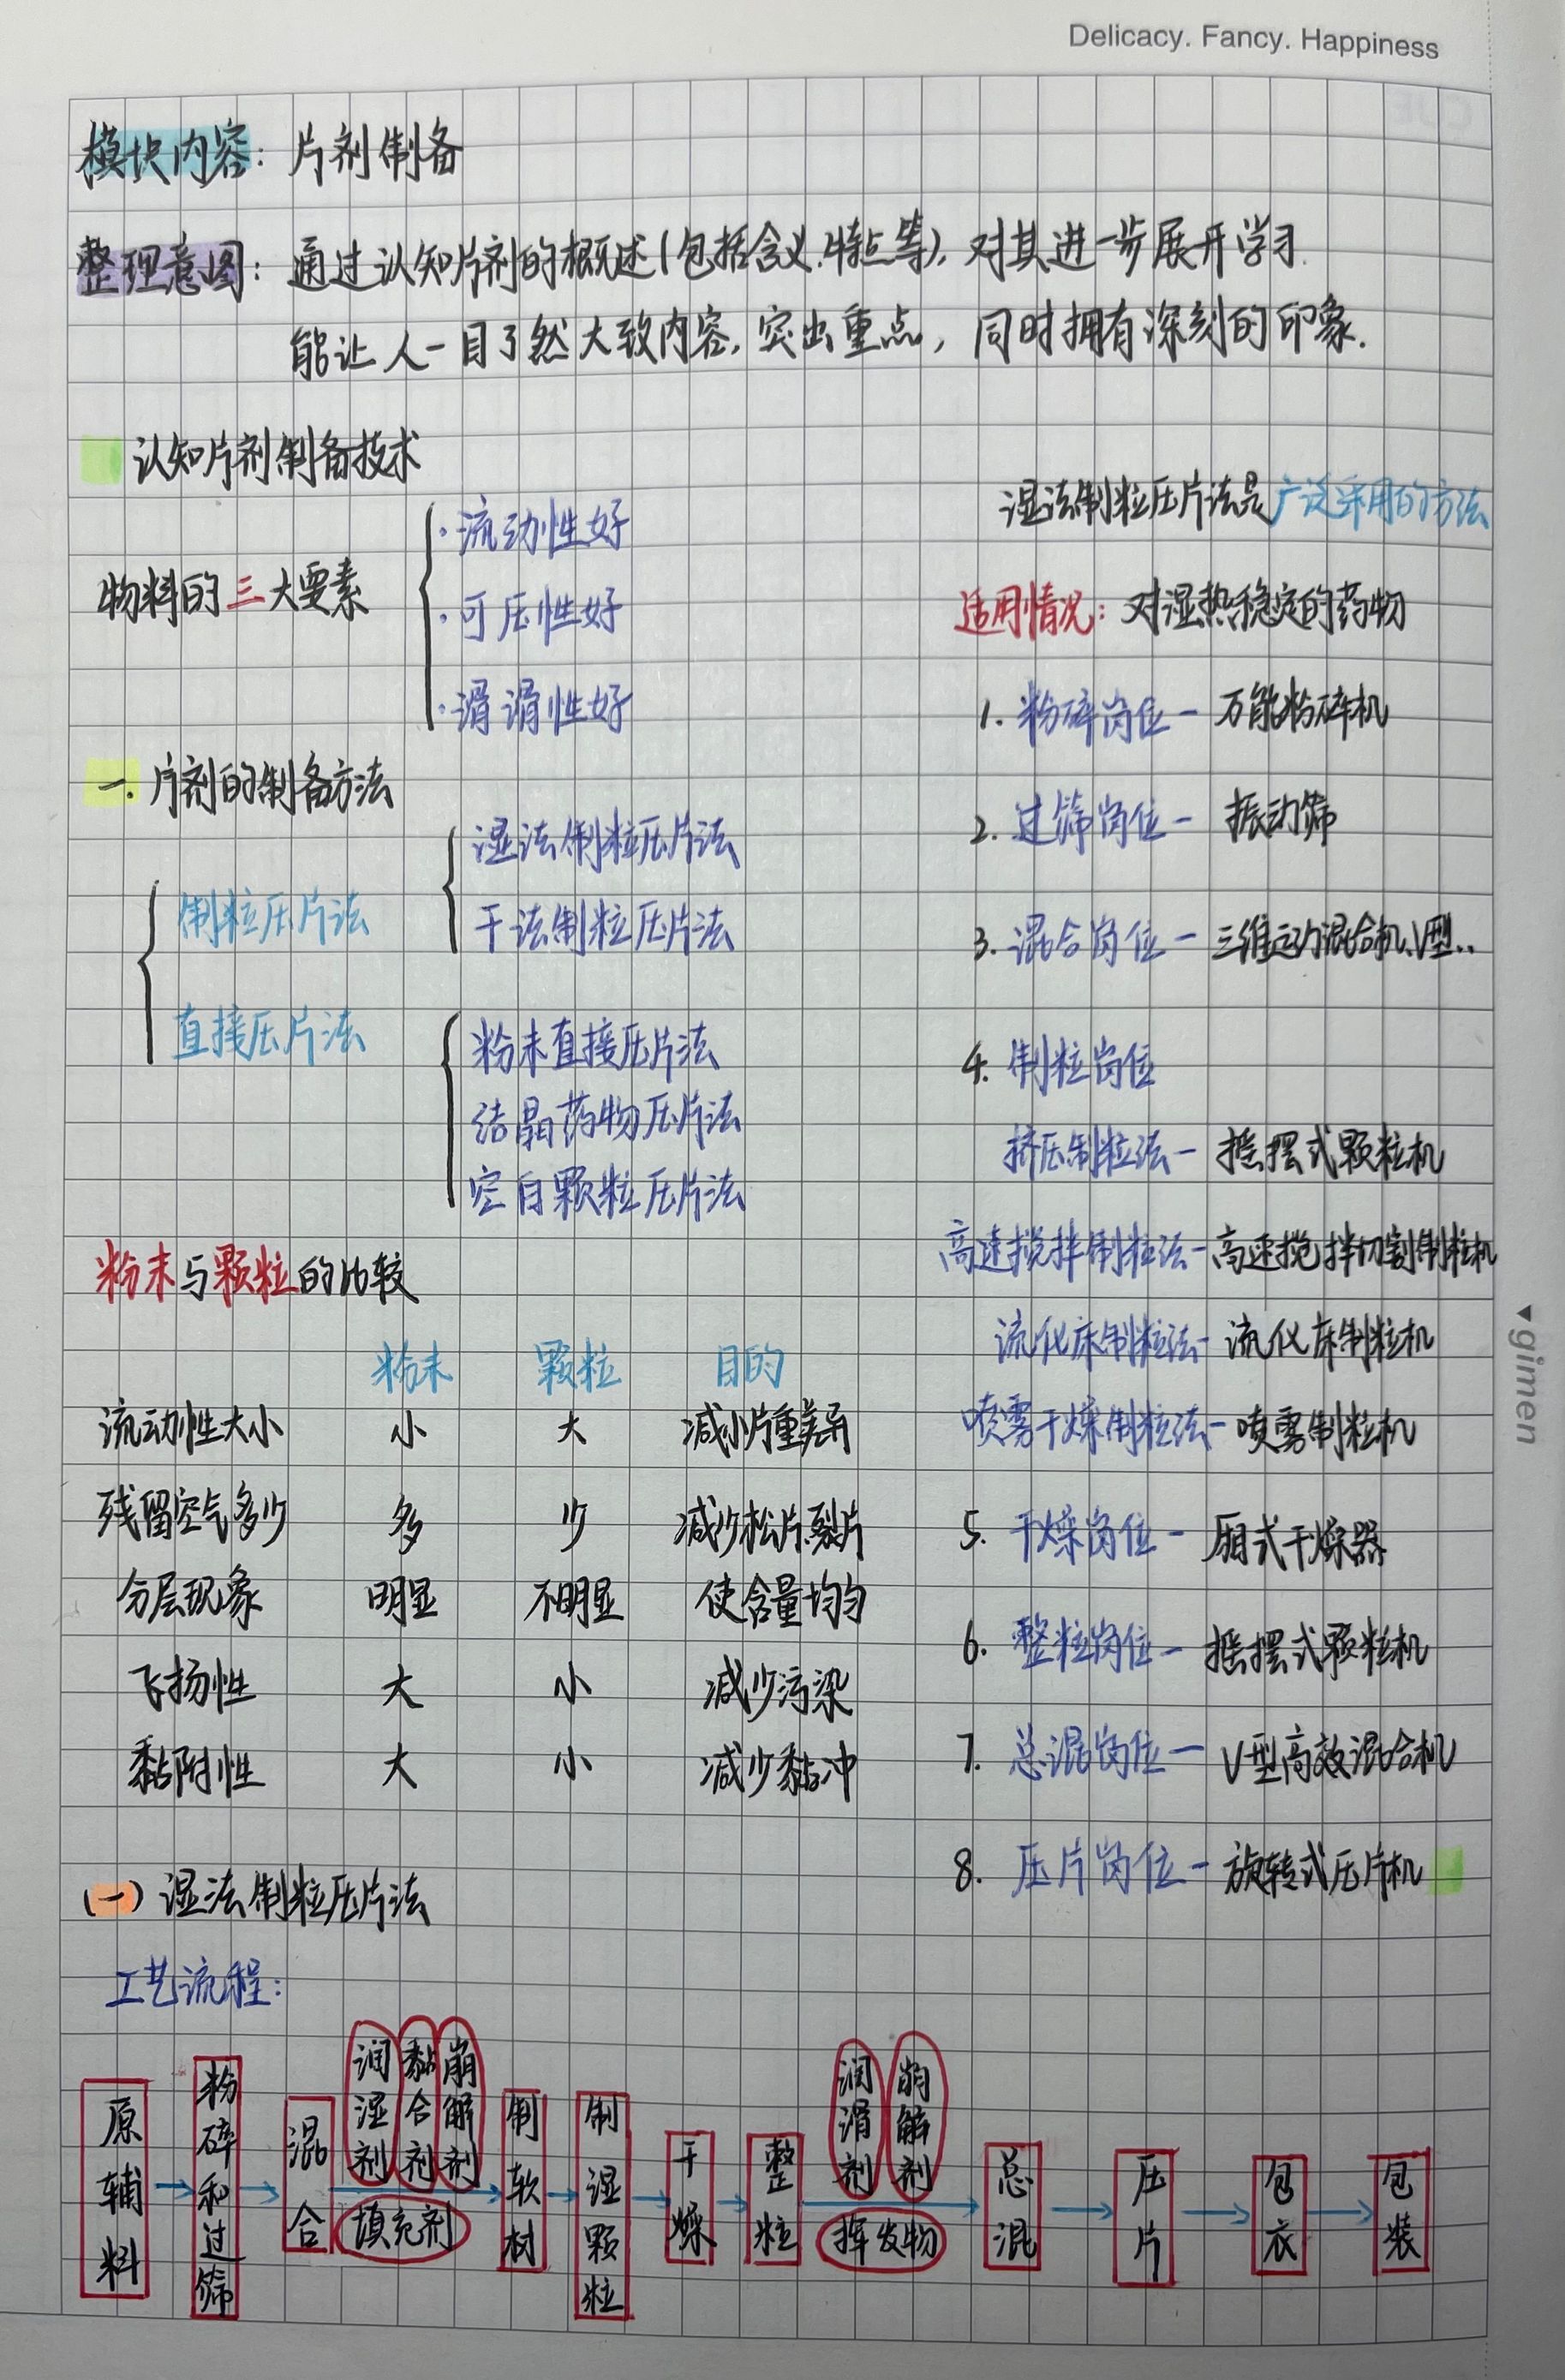 Delicacy. Fancy. Happiness
模块内容：片剂制备
整理意图：通过认知片剂的概述（包括含义、特点等），对其进一步展开学习.
能让人一目了然大致内容，突出重点，同时拥有深刻的印象.
认知片剂制备技术
物料的三大要素
·流动性好
·可压性好
·润滑性好
一. 片剂的制备方法
制粒压片法
湿法制粒压片法
干法制粒压片法
直接压片法
粉末直接压片法
结晶药物压片法
空白颗粒压片法
粉末与颗粒的比较
粉末 颗粒 目的
流动性大小 小 大 减小片重差异
残留空气多少 多 少 减少松片、裂片
分层现象 明显 不明显 使含量均匀
飞扬性 大 小 减少污染
黏附性 大 小 减少黏冲
（一）湿法制粒压片法
工艺流程：
原辅料
粉碎和过筛
混合
润湿剂
黏合剂
崩解剂
填充剂
制软材
制湿颗粒
干燥
整粒
润滑剂
崩解剂
挥发物
总混
压片
包衣
包装
湿法制粒压片法是广泛采用的方法
适用情况：对湿热稳定的药物
1. 粉碎岗位－万能粉碎机
2. 过筛岗位－振动筛
3. 混合岗位－三维运动混合机、V型..
4. 制粒岗位
挤压制粒法－摇摆式颗粒机
高速搅拌制粒法－高速搅拌切割制粒机
流化床制粒法－流化床制粒机
喷雾干燥制粒法－喷雾制粒机
5. 干燥岗位－厢式干燥器
6. 整粒岗位－摇摆式颗粒机
7. 总混岗位－V型高效混合机
8. 压片岗位－旋转式压片机
gimen